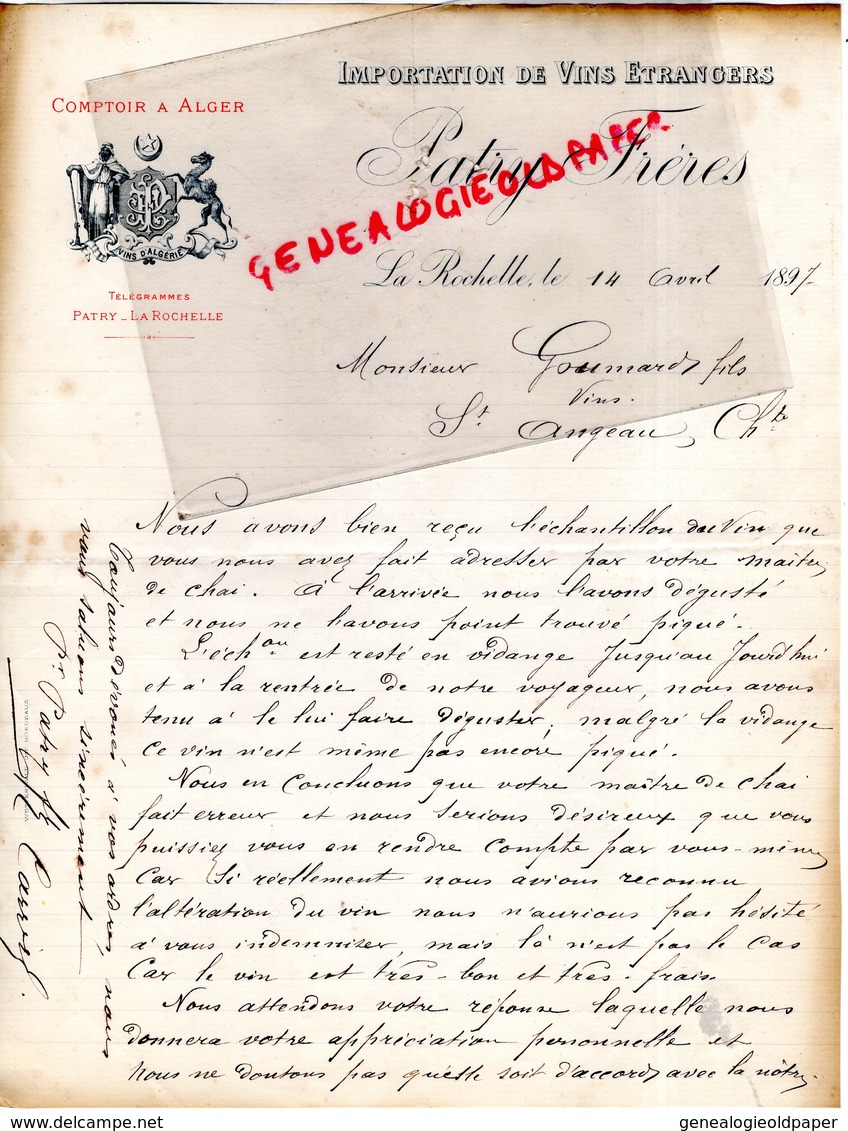 IMPORTATION DE VINS ETRANGERS
COMPTOIR A ALGER
Patry Frères
GENEALOGIEOLDPAPER
VINS D'ALGÉRIE
La Rochelle, le 14 Avril 1897
TÉLÉGRAMMES
PATRY_LA ROCHELLE
Monsieur Goumard fils
Vins.
St. Angeau, Chte
Nous avons bien reçu l'échantillon du Vin que
vous nous avez fait adresser par votre maître
de chai. À l'arrivée nous l'avons dégusté
et nous ne l'avons point trouvé piqué.
L'échon est resté en vidange jusqu'au jourd'hui
et à la rentrée de notre voyageur, nous avons
tenu à le lui faire déguster, malgré la vidange
ce vin n'est même pas encore piqué.
Nous en concluons que votre maître de chai
fait erreur et nous serions désireux que vous
puissiez vous en rendre compte par vous-même
Car si réellement nous avions reconnu
l'altération du vin nous n'aurions pas hésité
à vous indemniser, mais là n'est pas le cas
Car le vin est très-bon et très-frais.
Nous attendons votre réponse laquelle nous
donnera votre appréciation personnelle et
nous ne doutons pas qu'elle soit d'accord avec la nôtre.
Toujours dévoués à vos ordres, nous
vous saluons sincèrement
Pr Patry fs
BORDEAUX
genealogieoldpaper